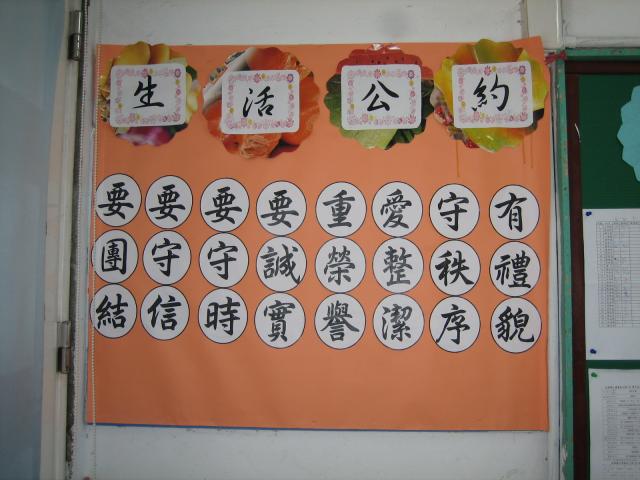 生活公約
有禮貌
守秩序
愛整潔
重榮譽
要誠實
要守時
要守信
要團結